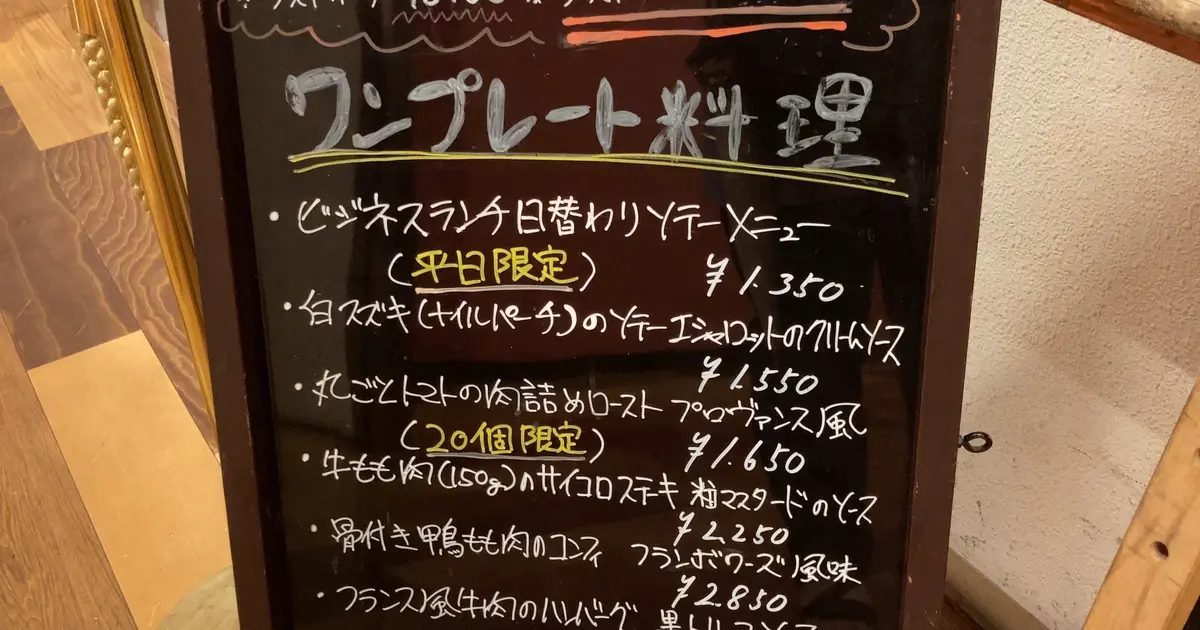 ワンプレート料理
・ビジネスランチ日替わりソテーメニュー
(平日限定) ¥1.350
・白スズキ(ナイルパーチ)のソテーエシャロットのクリームソース
¥1.550
・丸ごとトマトの肉詰めロースト プロヴァンス風
(20個限定) ¥1.650
・牛もも肉(150g)のサイコロステキ 粒マスタードのソース
¥2.250
・骨付き鴨もも肉のコンフィ フランボワーズ風味
¥2.850
・フランス風牛肉のハンバーグ